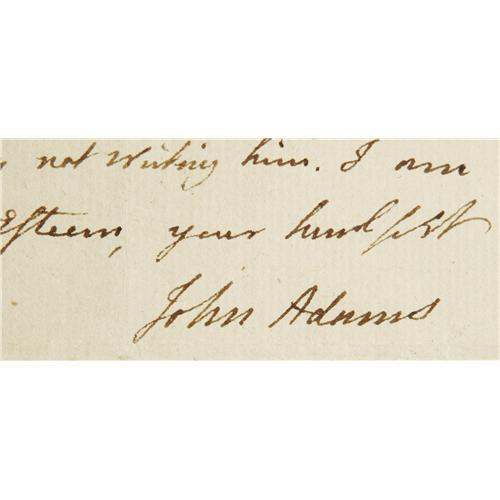 not writing him. I am
Esteem, your humb sert
John Adams